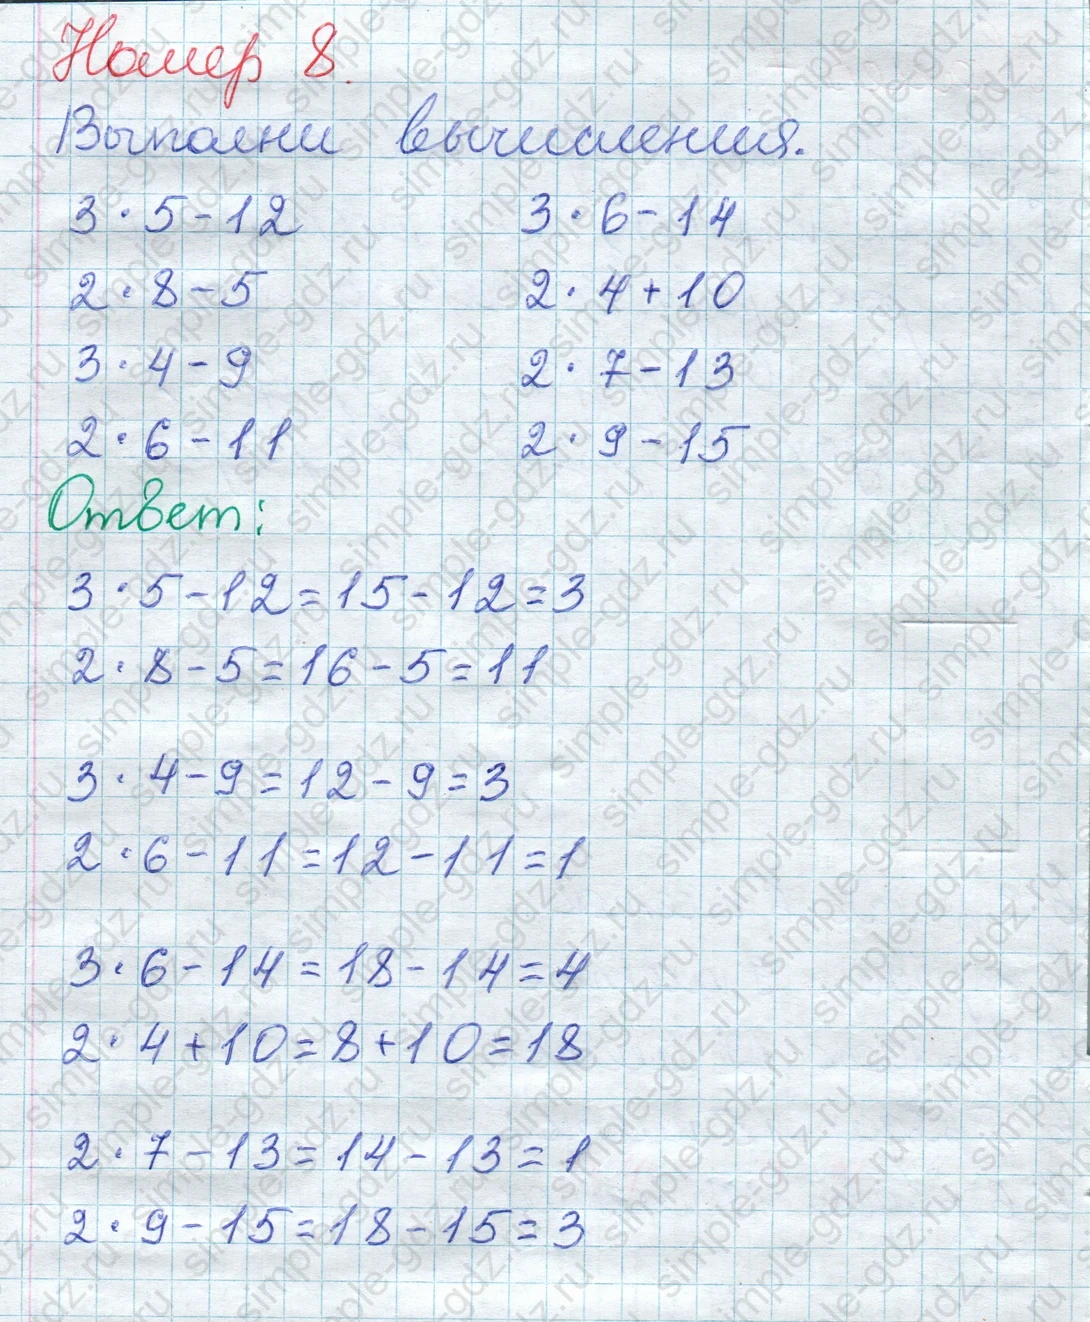 Номер 8.
Выполни вычисления.
3·5-12 3·6-14
2·8-5 2·4+10
3·4-9 2·7-13
2·6-11 2·9-15
Ответ:
3·5-12=15-12=3
2·8-5=16-5=11
3·4-9=12-9=3
2·6-11=12-11=1
3·6-14=18-14=4
2·4+10=8+10=18
2·7-13=14-13=1
2·9-15=18-15=3
simple-gdz.ru